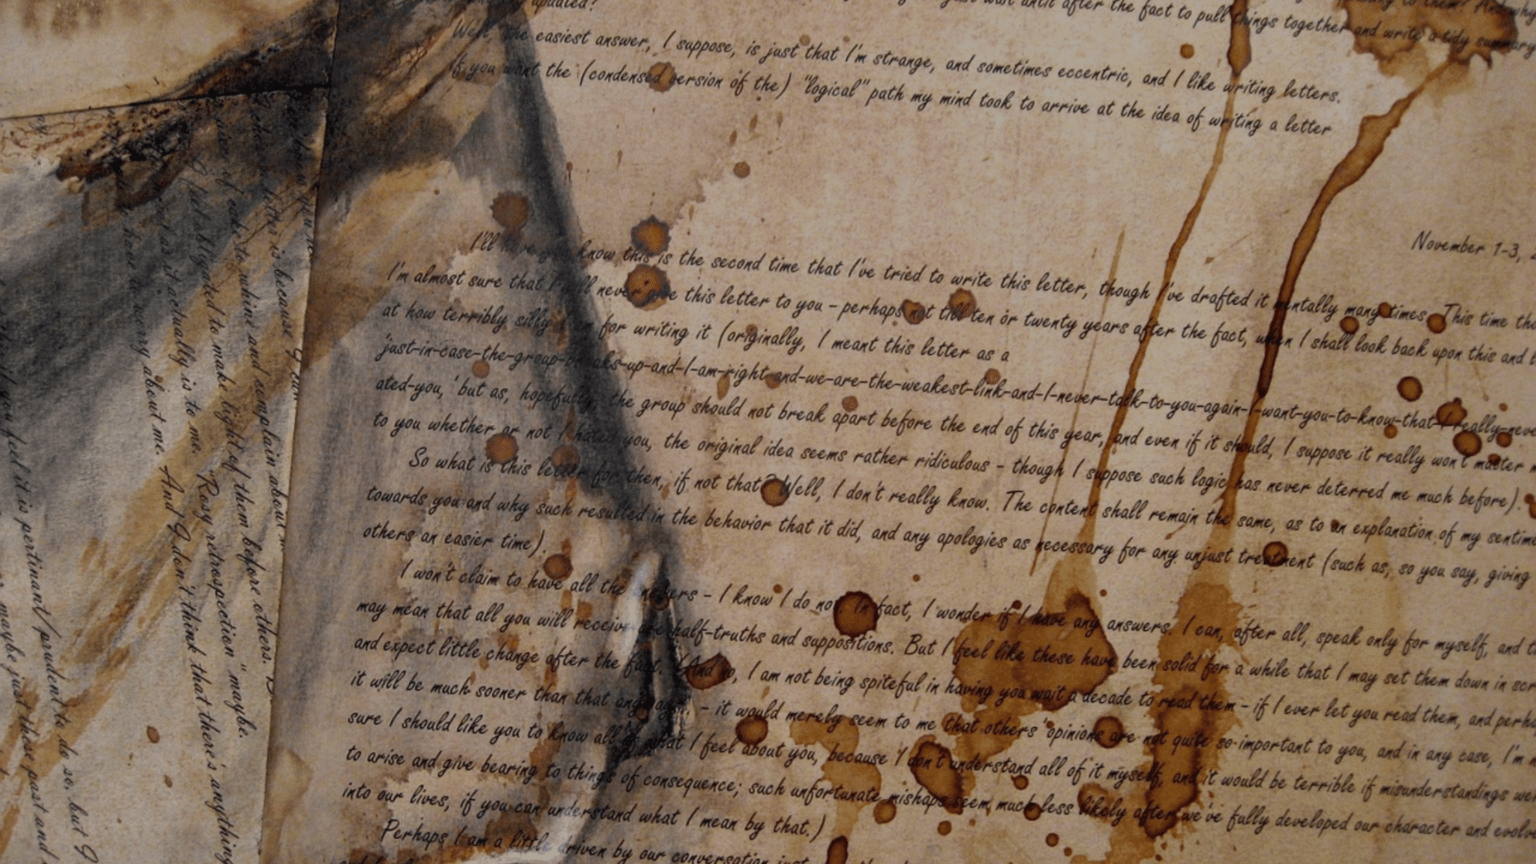 updated?
just wait until after the fact to pull things together and write a tidy summary
Well, the easiest answer, I suppose, is just that I'm strange, and sometimes eccentric, and I like writing letters.
If you want the (condensed version of the) "logical" path my mind took to arrive at the idea of writing a letter
November 1-3,
I'll have you know this is the second time that I've tried to write this letter, though I've drafted it mentally many times. This time
I'm almost sure that I will never give this letter to you – perhaps not till ten or twenty years after the fact, when I shall look back upon this and
at how terribly silly I am for writing it (originally, I meant this letter as a
'just-in-case-the-group-breaks-up-and-I-am-right-and-we-are-the-weakest-link-and-I-never-talk-to-you-again-I-want-you-to-know-that-I-really-never
ated-you,' but as, hopefully, the group should not break apart before the end of this year, and even if it should, I suppose it really won't matter
to you whether or not I hated you, the original idea seems rather ridiculous – though I suppose such logic has never deterred me much before).
So what is this letter for then, if not that? Well, I don't really know. The content shall remain the same, as to an explanation of my
towards you and why such resulted in the behavior that it did, and any apologies as necessary for any unjust treatment (such as, so you say, giving
others an easier time).
I won't claim to have all the answers – I know I do not. In fact, I wonder if I have any answers. I can, after all, speak only for myself, and
may mean that all you will receive are half-truths and suppositions. But I feel like these have been solid for a while that I may set them down in
and expect little change after the fact. (And no, I am not being spiteful in having you wait a decade to read them – if I ever let you read them, and
it will be much sooner than that anyway – it would merely seem to me that others' opinions are not quite so important to you, and in any case, I'm
sure I should like you to know all of what I feel about you, because I don't understand all of it myself, and it would be terrible if misunderstandings
to arise and give bearing to things of consequence; such unfortunate mishaps seem much less likely after we've fully developed our character and
into our lives, if you can understand what I mean by that.)
Perhaps I am a little driven by our conversation just
letter is because I
to whine and complain about
before others.
I felt obligated to make light of them
"Rosy retrospection" maybe.
it actually is to me.
And I don't think that there's anything
have to worry about me.
you feel it is pertinent/prudent to do so, but I
maybe just these past and